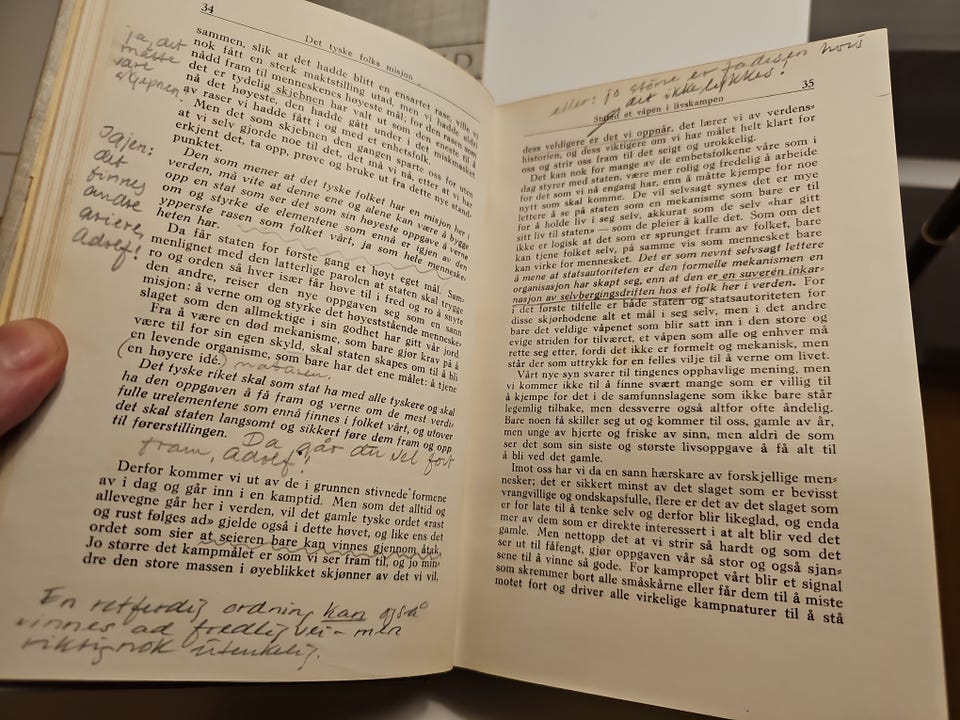 34
Det tyske folks misjon
ja, det
måtte
være
skjepnen
sammen, slik at det hadde blitt en ensartet rase, ville vi
nok fått en sterk maktstilling utad, men vi hadde aldri
nådd fram til menneskenes høyeste mål; for den rase som
det er tydelig skjebnen har valt ut som den eneste til å
nå det høyeste, den hadde gått under i det miskmasket
av raser vi hadde fått i og med et enhetsfolk.
Men det som skjebnen den gangen sparte oss for uten
at vi selv gjorde noe til det, det må vi nå, etter at vi har
erkjent det, ta opp, prøve og bruke ut fra dette nye stand-
punktet.
Igjen:
det
finnes
andre
ariere,
Adolf!
Den som mener at det tyske folket har en misjon her i
verden, må vite at denne ene og alene kan være å bygge
opp en stat som ser det som sin høieste oppgave å verne
om og styrke de elementene som ennå er igjen av den
ypperste rasen som folket vårt, ja som hele menneske-
heten har.
Da får staten for første gang et høyt eget mål. Sam-
menlignet med den latterlige parolen at staten skal trygge
ro og orden så hver især får hove til i fred og ro å snyte
den andre, reiser den nye oppgaven seg som en sann
misjon: å verne om og styrke det høyeststående menneske-
slaget som den allmektige i sin godhet har gitt vår jord.
Fra å være en død mekanisme, som bare gjør krav på å
være til for sin egen skyld, skal staten skapes om til å bli
en levende organisme, som bare har det ene målet: å tjene
(en høyere idé.) naturen.
Det tyske riket skal som stat ha med alle tyskere og skal
ha den oppgaven å få fram og verne om de mest verdi-
fulle urelementene som ennå finnes i folket vårt, og utover
det skal staten langsomt og sikkert føre dem fram og opp
til førerstillingen. Da går du vel fort
fram, Adolf!
Derfor kommer vi ut av de i grunnen stivnede formene
av i dag og går inn i en kamptid. Men som det alltid og
allevegne går her i verden, vil det gamle tyske ordet «rast
og rust følges ad» gjelde også i dette høvet, og like ens det
ordet som sier at seieren bare kan vinnes gjennom åtak.
Jo større det kampmålet er som vi ser fram til, og jo min-
dre den store massen i øyeblikket skjønner av det vi vil,
En rettferdig ordning kan også
vinnes ad fredlig vei – men
riktignok utenkelig.
eller: jo større er fadesen hvis
det ikke lykkes!
Staten et våpen i livskampen
35
dess veldigere er det vi oppnår, det lærer vi av verdens-
historien, og dess viktigere om vi har målet helt klart for
oss og strir oss fram til det seigt og urokkelig.
Det kan nok for mange av de embetsfolkene våre som i
dag styrer med staten, være mer rolig og fredelig å arbeide
for det som vi nå engang har, enn å måtte kjempe for noe
nytt som skal komme. De vil selvsagt synes det er mye
lettere å se på staten som en mekanisme som bare er til
for å holde liv i seg selv, akkurat som de selv «har gitt
sitt liv til staten» — som de pleier å kalle det. Som om det
ikke er logisk at det som er sprunget fram av folket, bare
kan tjene folket selv, på samme vis som mennesket bare
kan virke for mennesket. Det er som nevnt selvsagt lettere
å mene at statsautoriteten er den formelle mekanismen en
organisasjon har skapt seg, enn at den er en suverén inkar-
nasjon av selvbergingsdriften hos et folk her i verden. For
i det første tilfelle er både staten og statsautoriteten for
disse skjørhodene alt et mål i seg selv, men i det andre
bare det veldige våpenet som blir satt inn i den store og
evige striden for tilværet, et våpen som alle og enhver må
rette seg etter, fordi det ikke er formelt og mekanisk, men
står der som uttrykk for en felles vilje til å verne om livet.
Vårt nye syn svarer til tingenes opphavlige mening, men
vi kommer ikke til å finne svært mange som er villig til
å kjempe for det i de samfunnslagene som ikke bare står
legemlig tilbake, men dessverre også altfor ofte åndelig.
Bare noen få skiller seg ut og kommer til oss, gamle av år,
men unge av hjerte og friske av sinn, men aldri de som
ser det som sin siste og største livsoppgave å få alt til
å bli ved det gamle.
Imot oss har vi da en sann hærskare av forskjellige men-
nesker; det er sikkert minst av det slaget som er bevisst
vrangvillige og ondskapsfulle, flere er det av det slaget som
er for late til å tenke selv og derfor blir likeglad, og enda
mer av dem som er direkte interessert i at alt blir ved det
gamle. Men nettopp det at vi strir så hardt og som det
ser ut til fåfengt, gjør oppgaven vår så stor og også sjan-
sene til å vinne så gode. For kampropet vårt blir et signal
som skremmer bort alle småskårne eller får dem til å miste
motet fort og driver alle virkelige kampnaturer til å stå